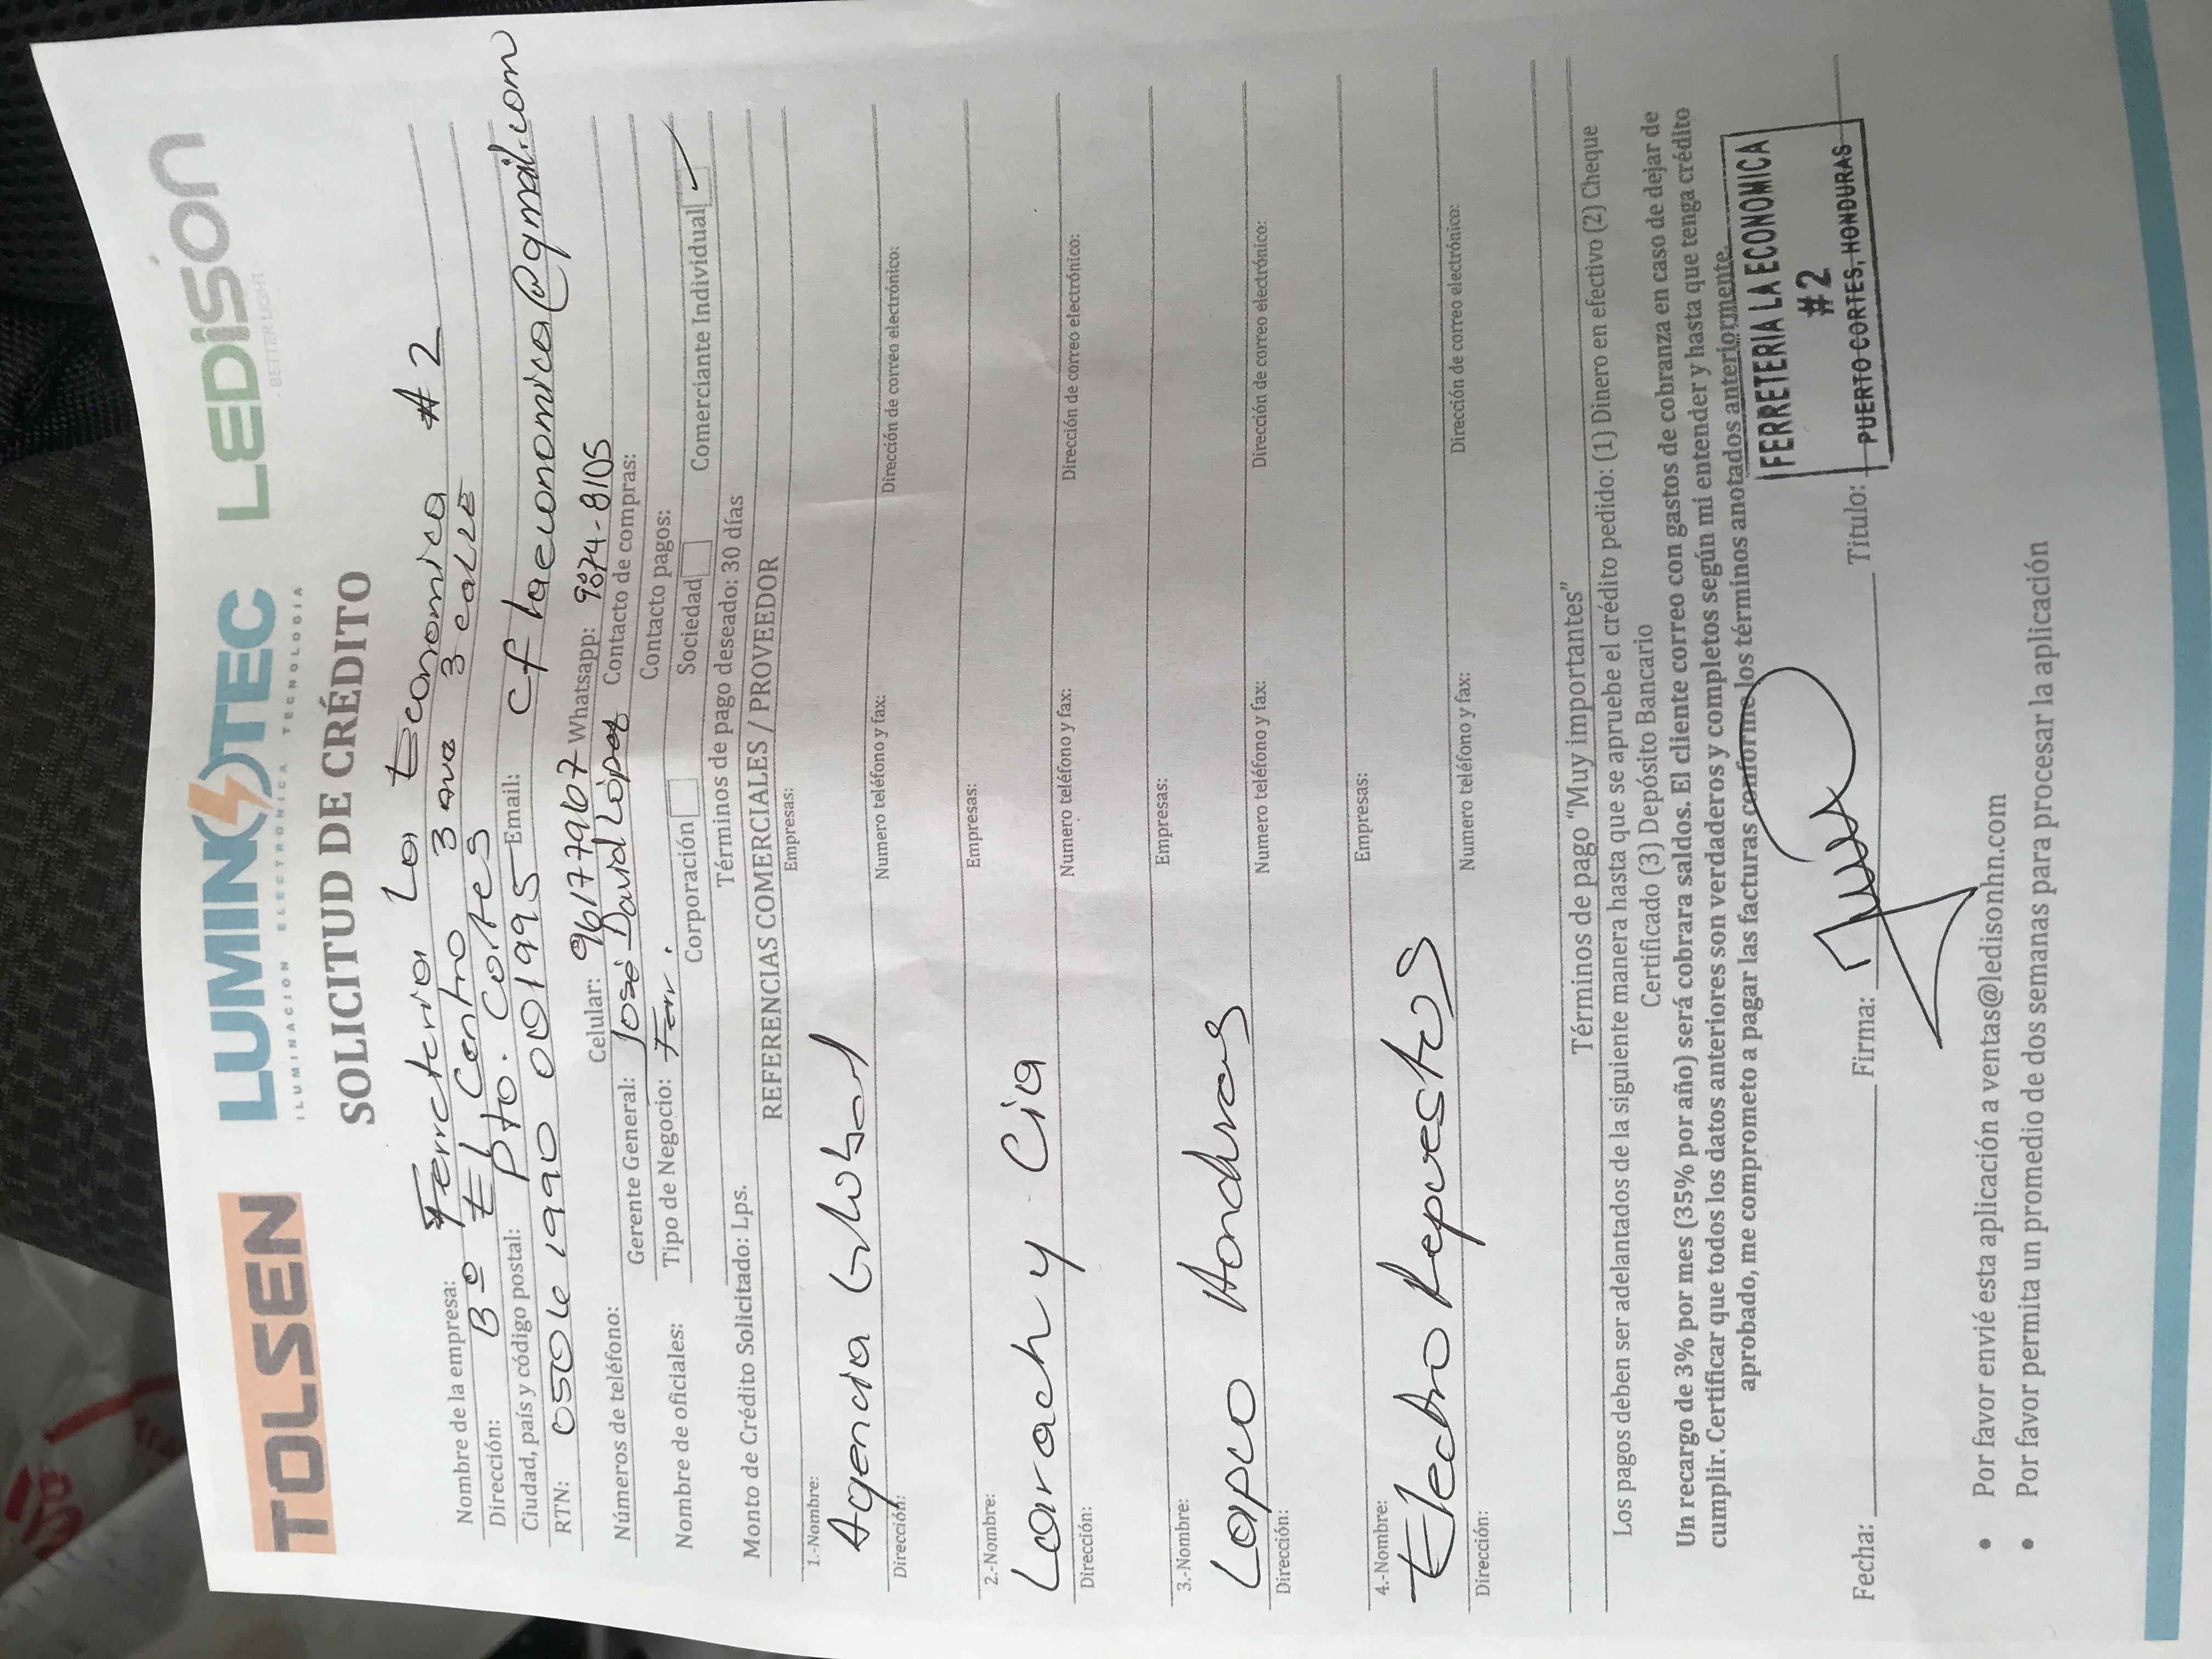 TOLSEN
LUMINOTEC
ILUMINACION ELECTRONICA TECNOLOGIA
LEDISON
- BETTER LIGHT
SOLICITUD DE CRÉDITO
Nombre de la empresa: Ferreteria La Economica #2
Dirección: Bº El Centro 3 ave 3 calle
Ciudad, país y código postal: Pto. Cortes
RTN: 05061990 001995 Email: cflaeconomica@gmail.com
Números de teléfono: Celular: 96177967 Whatsapp: 9874-8105
Gerente General: José David López Contacto de compras:
Nombre de oficiales: Tipo de Negocio: Ferr. Contacto pagos:
Corporación Sociedad Comerciante Individual ✓
Monto de Crédito Solicitado: Lps. Términos de pago deseado: 30 días
REFERENCIAS COMERCIALES / PROVEEDOR
1.-Nombre: Empresas:
Agencia Global
Dirección: Numero teléfono y fax: Dirección de correo electrónico:
2.-Nombre: Empresas:
Larach y Cia
Dirección: Numero teléfono y fax: Dirección de correo electrónico:
3.-Nombre: Empresas:
Lapco Honduras
Dirección: Numero teléfono y fax: Dirección de correo electrónico:
4.-Nombre: Empresas:
Electro Repuestos
Dirección: Numero teléfono y fax: Dirección de correo electrónico:
Términos de pago “Muy importantes”
Los pagos deben ser adelantados de la siguiente manera hasta que se apruebe el crédito pedido: (1) Dinero en efectivo (2) Cheque
Certificado (3) Depósito Bancario
Un recargo de 3% por mes (35% por año) será cobrara saldos. El cliente correo con gastos de cobranza en caso de dejar de
cumplir. Certificar que todos los datos anteriores son verdaderos y completos según mi entender y hasta que tenga crédito
aprobado, me comprometo a pagar las facturas conforme los términos anotados anteriormente.
FERRETERIA LA ECONOMICA
#2
PUERTO CORTES, HONDURAS
Fecha: Firma: Titulo:
• Por favor envié esta aplicación a ventas@ledisonhn.com
• Por favor permita un promedio de dos semanas para procesar la aplicación